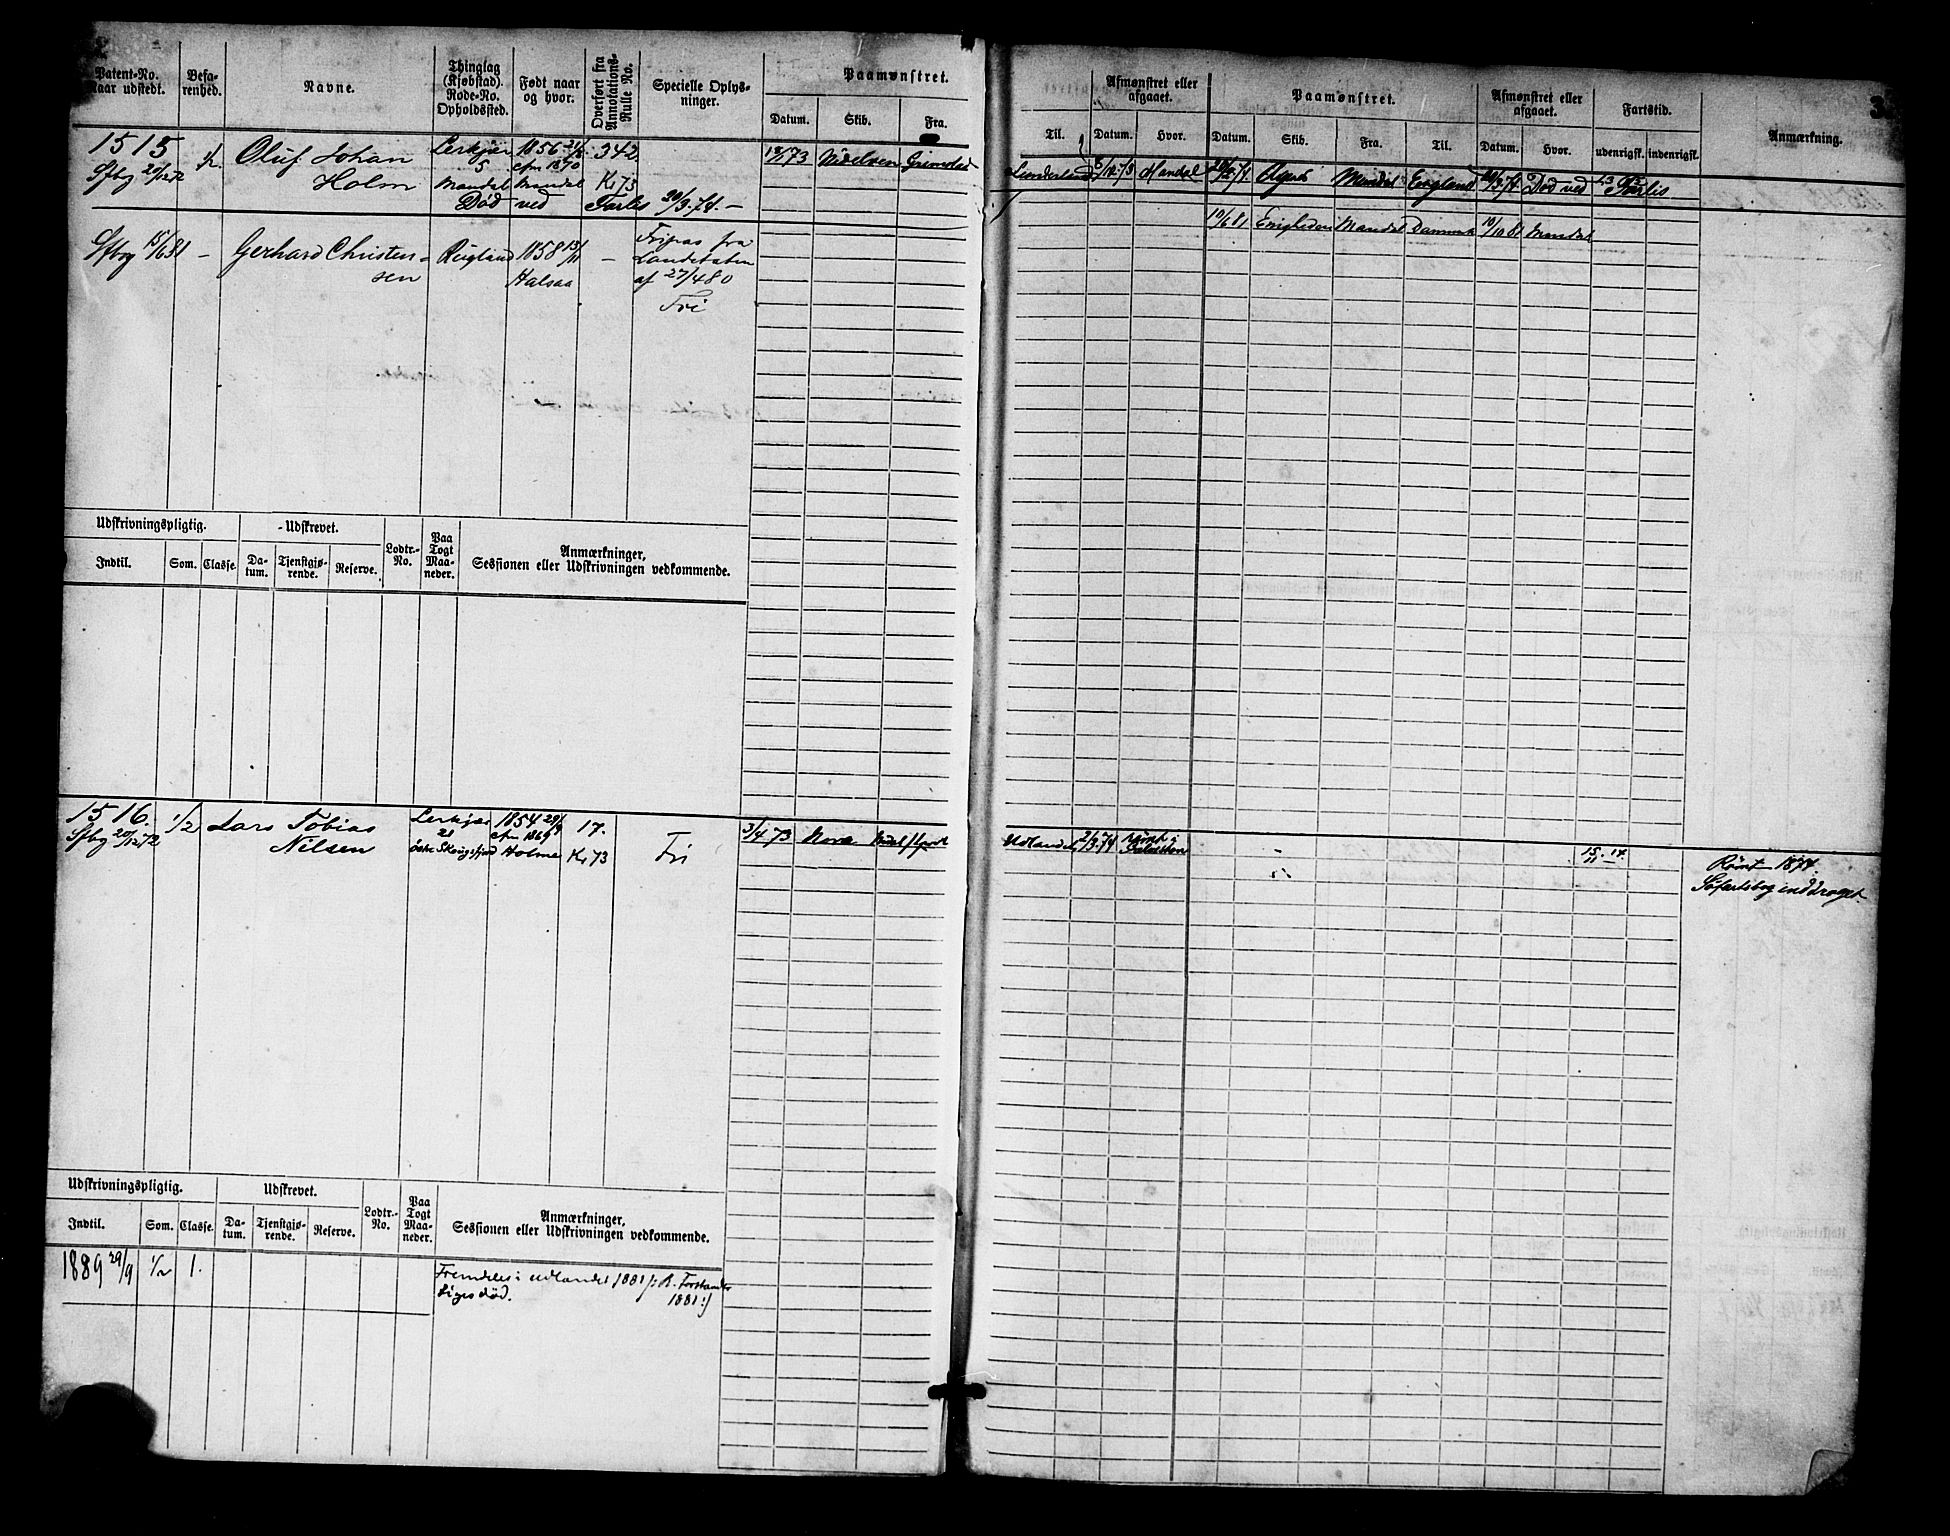 Patent-No. Naar udstedt. Befarenhed. Navne. Thinglag (Kjøbstad). Rode-No. Opholdssted. Født naar og hvor. Overført fra Annotations-Rulle No. Specielle Oplysninger. Paamønstret.
Datum. Skib. Fra.
1515 Oluf Johan Lerkjær 1856 342
Sfbg 20/12 72 1/2 Holm 5 Mandal Mandal K 73
Død ved Farlis 20/3.74.-
Sfbog 15/6 81 - Gerhard Christensen Rugland 1858 13/11 Halsaa - Fripas fra Landetaten af 27/4 80 Fri
73 Nidelven Grimstad
Udskrivningspligtig. Udskrevet. Lodtr.-No. Paa Togt Maaneder. Anmærkninger, Sessionen eller Udskrivningen vedkommende.
Indtil. Som. Classe. Datum. Tjenstgjørende. Reserve.
1516. 1/2 Lars Tobias Lerkjær 1854 29/9 17. Fri
Sfbg 20/12 72 Nilsen 21 Skougsfjord Holme K 73
3/4 73 Nora
Udskrivningspligtig. Udskrevet. Lodtr.-No. Paa Togt Maaneder. Anmærkninger, Sessionen eller Udskrivningen vedkommende.
Indtil. Som. Classe. Datum. Tjenstgjørende. Reserve.
1889 29/9 1/2 1. Fremdeles i udlandet 1881
1881
Afmønstret eller afgaaet. Paamønstret. Afmønstret eller afgaaet. Fartstid. Anmærkning.
Til. Datum. Hvor. Datum. Skib. Fra. Til. Datum. Hvor. udenrigsk. indenrigsk.
Sunderland Mandal Mandal England Død ved Farlis
10/6 81 Enigheden Mandal Danmark 10/10 81 Mandal
Udlandet 2/3.74 Rømt i
Rømt 1874.
Søfartsbog inddraget.